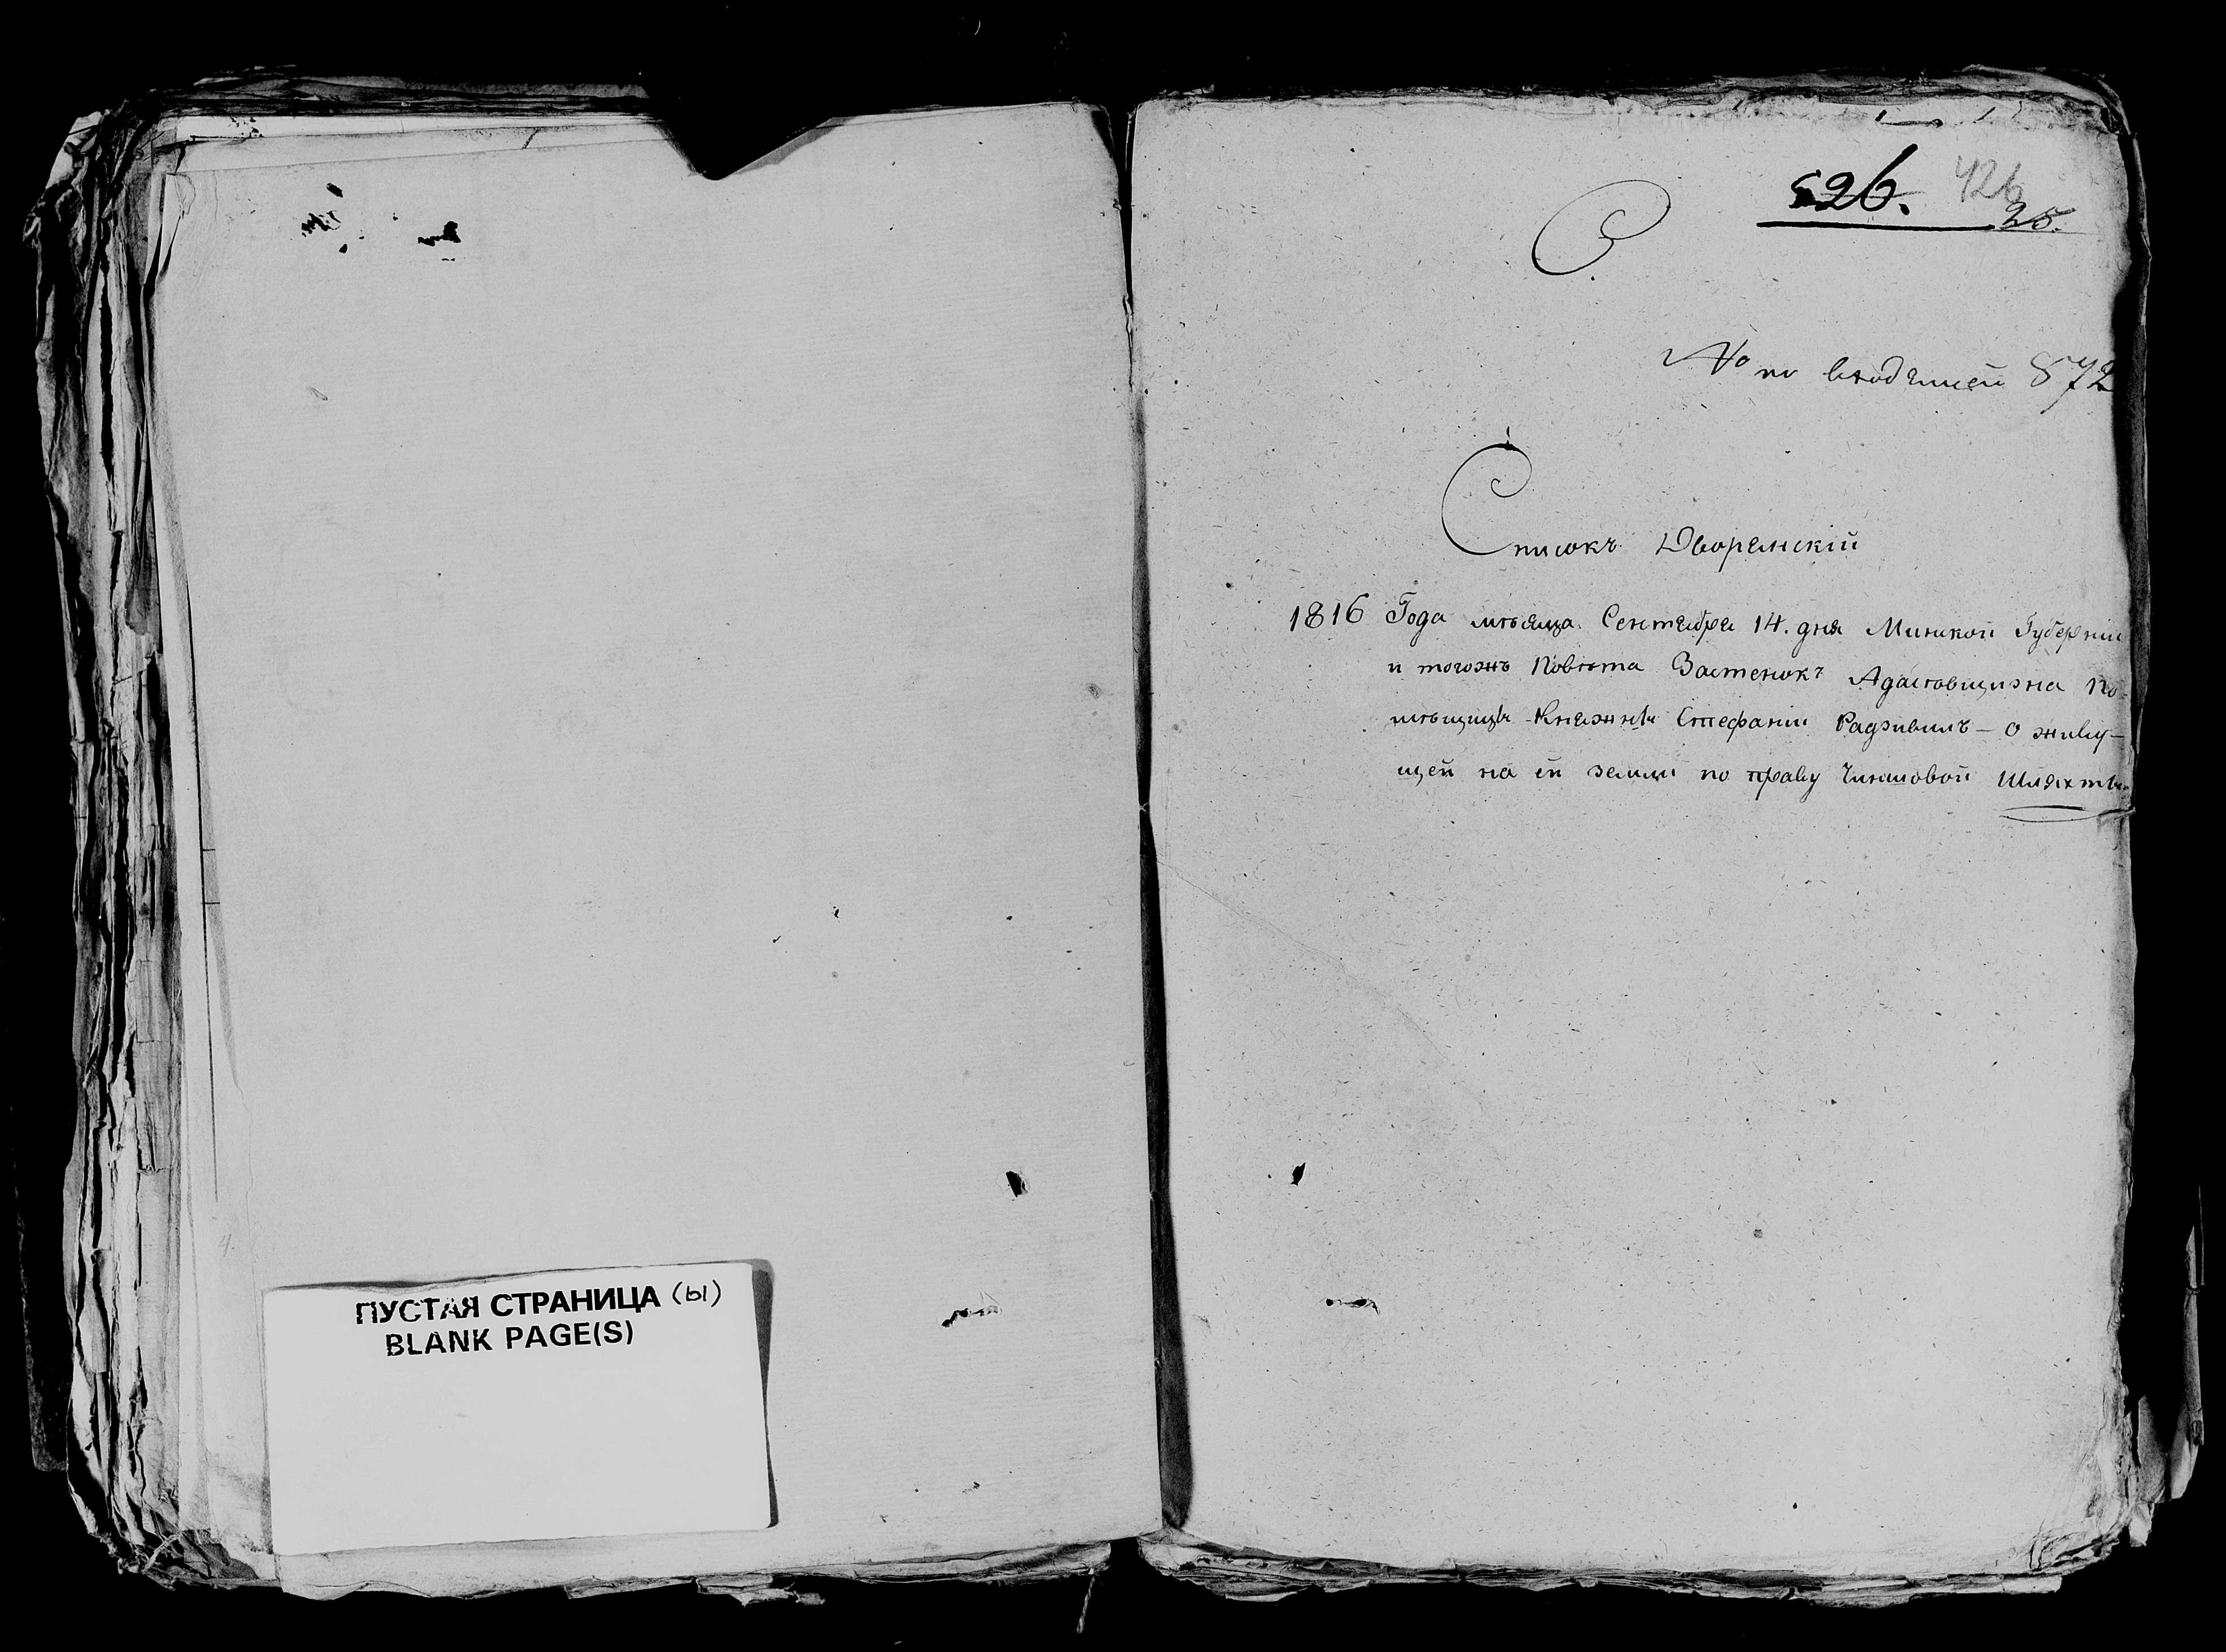 ПУСТАЯ СТРАНИЦА (ы)
BLANK PAGE(S)
526. 426
25.
С
No по входящей 872
Списокъ Дворянскій
1816 Года мѣсяца Сентября 14. дня Минской Губерніи
и тогожъ Повѣта Застенокъ По-
мѣщицы Княжны Стефаніи Радзивилъ – о живу-
щей на ей земли по праву Чиншовой Шляхты